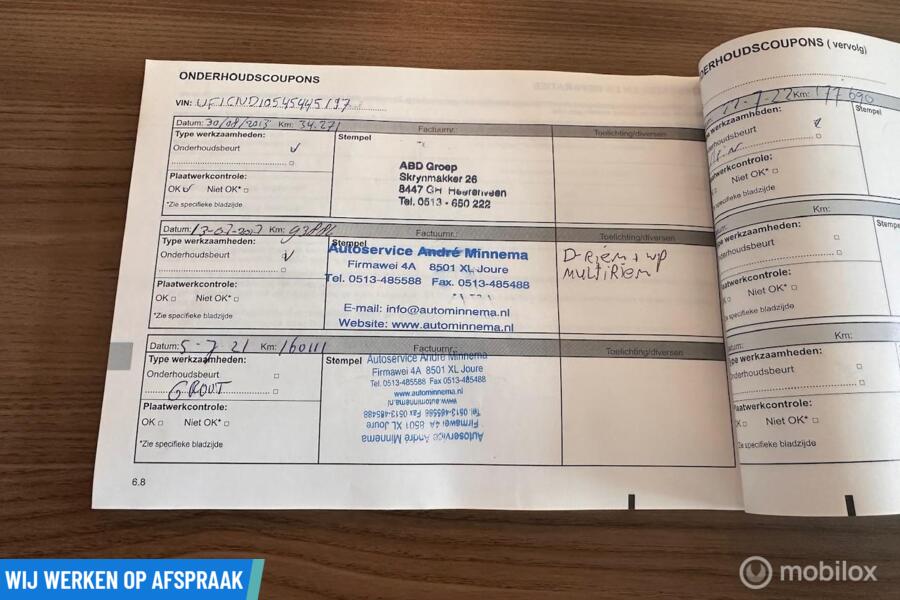 ONDERHOUDSCOUPONS
VIN: VF1CND10545445197
Datum: 30/08/2013 Km: 34.271 Factuurnr.: Toelichting/diversen
Type werkzaamheden: Stempel
Onderhoudsbeurt
Plaatwerkcontrole:
OK Niet OK*
*Zie specifieke bladzijde
ABD Groep
Skrynmakker 26
8447 GH Heerenveen
Tel. 0513 - 650 222
Datum: 13-07-2017 Km: Factuurnr.: Toelichting/diversen
Type werkzaamheden: Stempel
Onderhoudsbeurt
Plaatwerkcontrole:
OK Niet OK*
*Zie specifieke bladzijde
Autoservice André Minnema
Firmawei 4A 8501 XL Joure
Tel. 0513-485588 Fax. 0513-485488
E-mail: info@autominnema.nl
Website: www.autominnema.nl
D-Riem + WP
MULTIRIEM
Datum: 5-7-21 Km: 160111 Factuurnr.: Toelichting/diversen
Type werkzaamheden: Stempel
Onderhoudsbeurt
GROOT
Plaatwerkcontrole:
OK Niet OK*
*Zie specifieke bladzijde
Autoservice André Minnema
Firmawei 4A 8501 XL Joure
Tel. 0513-485588 Fax 0513-485488
www.autominnema.nl
www.autominnema.nl
Tel. 0513-485588 Fax 0513-485488
Firmawei 4A 8501 XL Joure
Autoservice André Minnema
6.8
ONDERHOUDSCOUPONS (vervolg)
Km: 177690
Type werkzaamheden: Stempel
Onderhoudsbeurt
Plaatwerkcontrole:
Niet OK*
*Zie specifieke bladzijde
Datum: Km:
Type werkzaamheden: Stempel
Onderhoudsbeurt
Plaatwerkcontrole:
OK Niet OK*
*Zie specifieke bladzijde
Datum: Km:
Type werkzaamheden: Stempel
Onderhoudsbeurt
Plaatwerkcontrole:
OK Niet OK*
*Zie specifieke bladzijde
WIJ WERKEN OP AFSPRAAK
mobilox